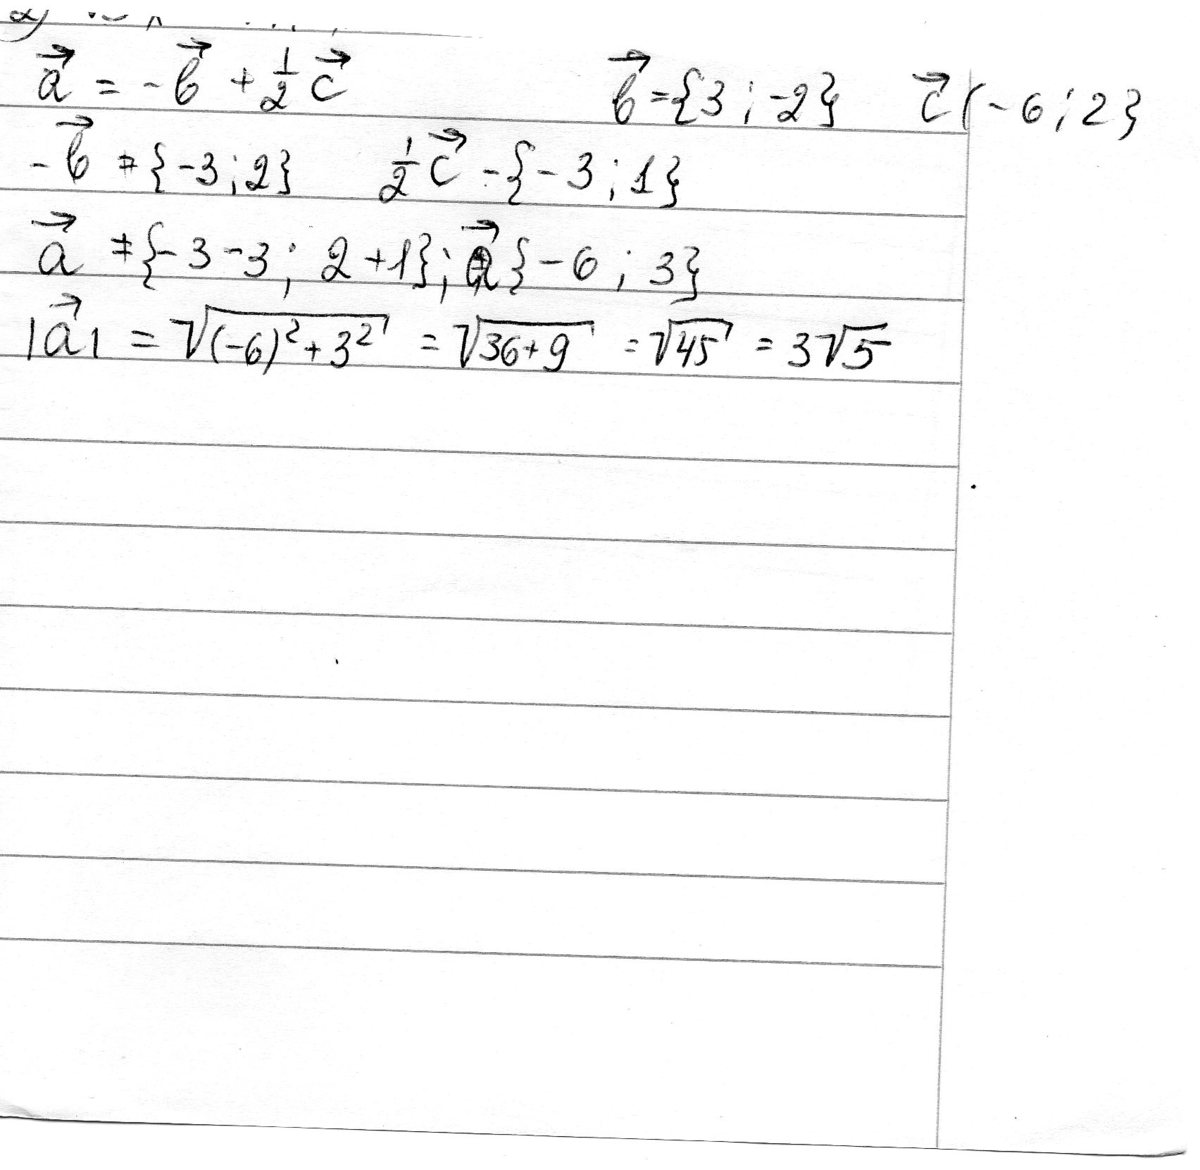 a⃗ = -b⃗ + ½ c⃗ b⃗ = {3 ; -2} c⃗ (-6 ; 2}
-b⃗ = {-3 ; 2} ½ c⃗ - {-3 ; 1}
a⃗ = {-3 -3 ; 2 + 1} ; a⃗ } -6 ; 3}
|a⃗| = √((-6)² + 3²) = √(36+9) = √45 = 3√5